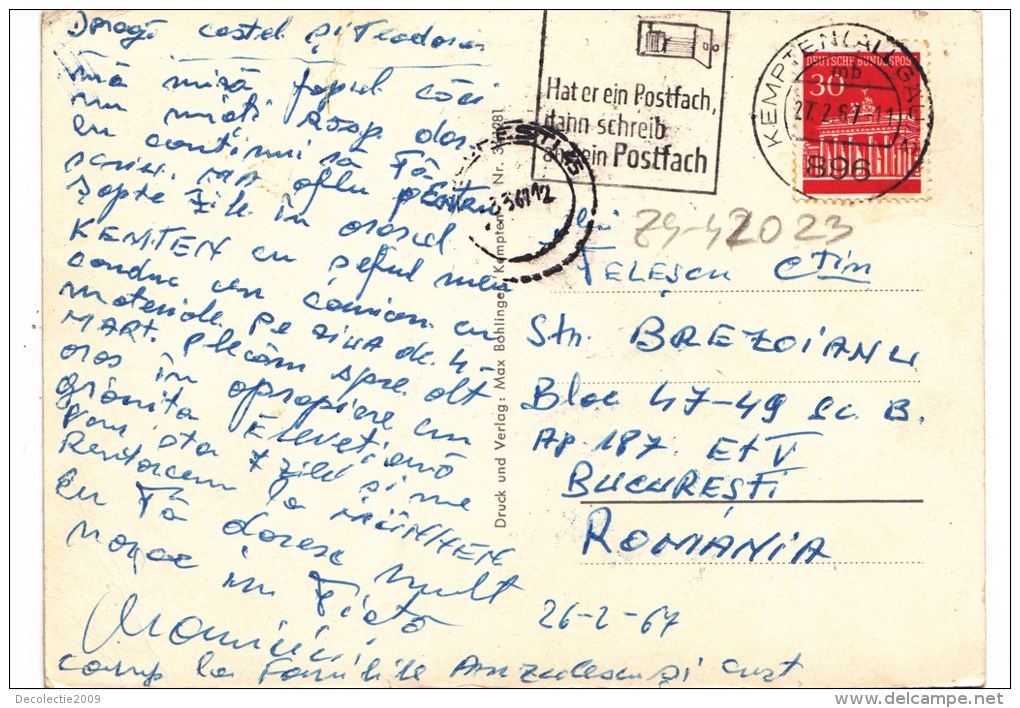 Dragi Costel și Teodora
mă miră faptul căci
nu
eu continui să Tă
scriu. mă aflu pentru
șapte zile în orașul
KEMTEN cu șeful meu
conduc un camion cu
materiale pe ziua de 4-
MART. Plecăm spre alt
oraș în apropiere cu
grănița Elvețiană
vom sta 7 zile și ne
Reîntorcem la MÜNHEN
eu Tă doresc mult
noroc în Viață
comp la Familiile Anzulescu și
Hat er ein Postfach,
dann schreib
ans ein Postfach
KEMPTEN (ALLGÄU)
mb
27.2.67-11
896
DEUTSCHE BUNDESPOST
30
Druck und Verlag: Max Böhlinger, Kempten
Nr.
74-42023
TELEȘCU CTin
Str. BREZOIANU
Bloc 47-49 Sc. B.
Ap. 187. Et V
BUCUREȘTI
ROMÂNIA
26-2-67
Decolectie2009
www.delcampe.net